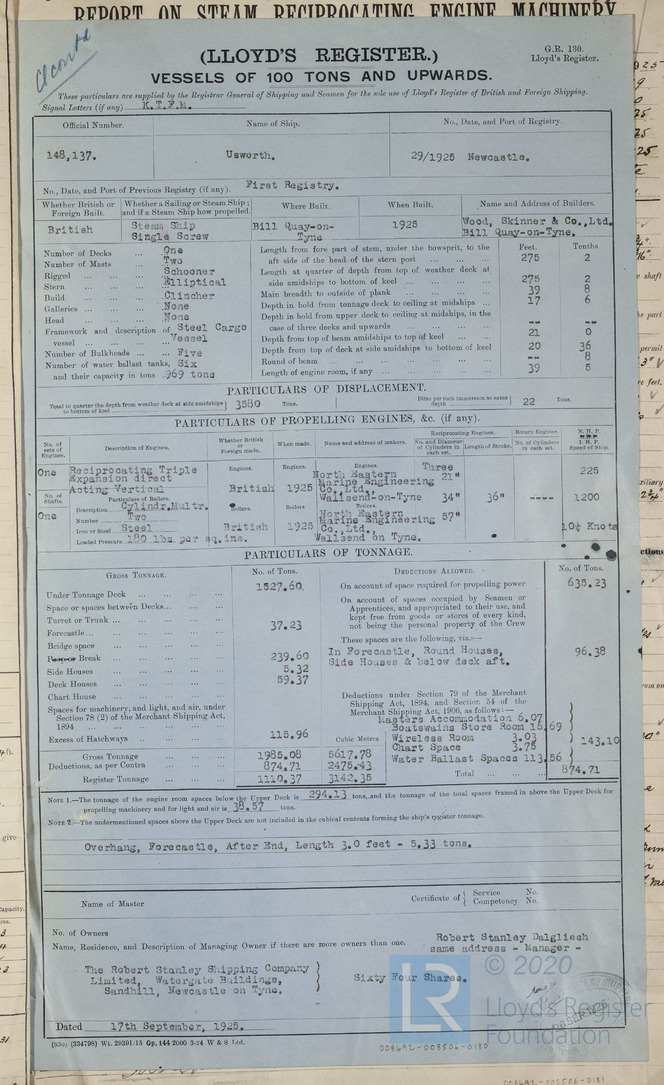 REPORT ON STEAM RECIPROCATING ENGINE MACHINERY
(LLOYD'S REGISTER.)
G.R. 130.
Lloyd's Register.
VESSELS OF 100 TONS AND UPWARDS.
These particulars are supplied by the Registrar General of Shipping and Seamen for the sole use of Lloyd's Register of British and Foreign Shipping.
Signal Letters (if any) K.T.F.M.
Official Number. Name of Ship. No., Date, and Port of Registry.
148,137. Usworth. 29/1925 Newcastle.
No., Date, and Port of Previous Registry (if any). First Registry.
Whether British or Foreign Built. Whether a Sailing or Steam Ship; and if a Steam Ship how propelled. Where Built. When Built. Name and Address of Builders.
British Steam Ship Single Screw Bill Quay-on-Tyne 1925 Wood, Skinner & Co., Ltd. Bill Quay-on-Tyne.
Number of Decks ... One
Number of Masts ... Two
Rigged ... Schooner
Stern ... Elliptical
Build ... Clincher
Galleries ... None
Head ... None
Framework and description of vessel ... Steel Cargo Vessel
Number of Bulkheads ... Five
Number of water ballast tanks, Six
and their capacity in tons 969 tons
Feet. Tenths
Length from fore part of stem, under the bowsprit, to the aft side of the head of the stern post ... 275 2
Length at quarter of depth from top of weather deck at side amidships to bottom of keel ... 275 2
Main breadth to outside of plank ... 39 8
Depth in hold from tonnage deck to ceiling at midships ... 17 6
Depth in hold from upper deck to ceiling at midships, in the case of three decks and upwards ... -- --
Depth from top of beam amidships to top of keel ... 21 0
Depth from top of deck at side amidships to bottom of keel 20 36
Round of beam ... -- 8
Length of engine room, if any ... 39 5
PARTICULARS OF DISPLACEMENT.
Total to quarter the depth from weather deck at side amidships to bottom of keel 3580 Tons. Ditto per inch immersion at same depth 22 Tons.
PARTICULARS OF PROPELLING ENGINES, &c. (if any).
No. of sets of Engines. Description of Engines. Whether British or Foreign made. When made. Name and address of makers. Reciprocating Engines. No. and Diameter of Cylinders in each set. Length of Stroke. Rotary Engines. No. of Cylinders in each set. N.H.P. I.H.P. Speed of Ship.
One Reciprocating Triple Expansion direct Acting Vertical
Engines. British Engines. 1925 Engines. North Eastern Marine Engineering Co., Ltd. Wallsend-on-Tyne
Three 21" 34" 57" 36" ---- 225 1200 10½ Knots
No. of Shafts. One
Particulars of Boilers.
Description Cylindr.Multr.
Number Two
Iron or Steel Steel
Loaded Pressure 180 lbs. per sq. ins.
Boilers. British Boilers 1925 Boilers. North Eastern Marine Engineering Co., Ltd., Wallsend on Tyne.
PARTICULARS OF TONNAGE.
GROSS TONNAGE. No. of Tons.
Under Tonnage Deck ... 1527.60
Space or spaces between Decks ...
Turret or Trunk ...
Forecastle ... 37.23
Bridge space ...
Poop or Break ... 239.60
Side Houses ... 5.32
Deck Houses ... 59.37
Chart House ...
Spaces for machinery, and light, and air, under Section 78 (2) of the Merchant Shipping Act, 1894 ...
Excess of Hatchways ... 115.96
Cubic Metres
Gross Tonnage ... 1985.08 5617.78
Deductions, as per Contra ... 874.71 2475.43
Register Tonnage ... 1110.37 3142.35
DEDUCTIONS ALLOWED. No. of Tons.
On account of space required for propelling power 635.23
On account of spaces occupied by Seamen or Apprentices, and appropriated to their use, and kept free from goods or stores of every kind, not being the personal property of the Crew
These spaces are the following, viz.:—
In Forecastle, Round Houses, Side Houses & below deck aft. 96.38
Deductions under Section 79 of the Merchant Shipping Act, 1894, and Section 54 of the Merchant Shipping Act, 1906, as follows:—
Masters Accommodation 6.07
Boatswains Store Room 16.69
Wireless Room 3.03
Chart Space 3.75
Water Ballast Spaces 113.56
143.10
Total ... 874.71
NOTE 1.—The tonnage of the engine room spaces below the Upper Deck is 294.13 tons, and the tonnage of the total spaces framed in above the Upper Deck for
propelling machinery and for light and air is 38.57 tons.
NOTE 2.—The undermentioned spaces above the Upper Deck are not included in the cubical contents forming the ship's register tonnage.
Overhang, Forecastle, After End, Length 3.0 feet - 5.33 tons.
Name of Master Certificate of { Service No. Competency No.
No. of Owners
Name, Residence, and Description of Managing Owner if there are more owners than one.
Robert Stanley Dalgliesh
same address - Manager -
The Robert Stanley Shipping Company
Limited, Watergate Buildings,
Sandhill, Newcastle on Tyne.
Sixty Four Shares.
Dated 17th September, 1925.
(830) (334798) Wt. 29391/15 Gp. 144 2000 3-24 W & S Ltd.
© 2020
LR
Lloyd's Register
Foundation
008692-008506-0180
008692-008506-0181